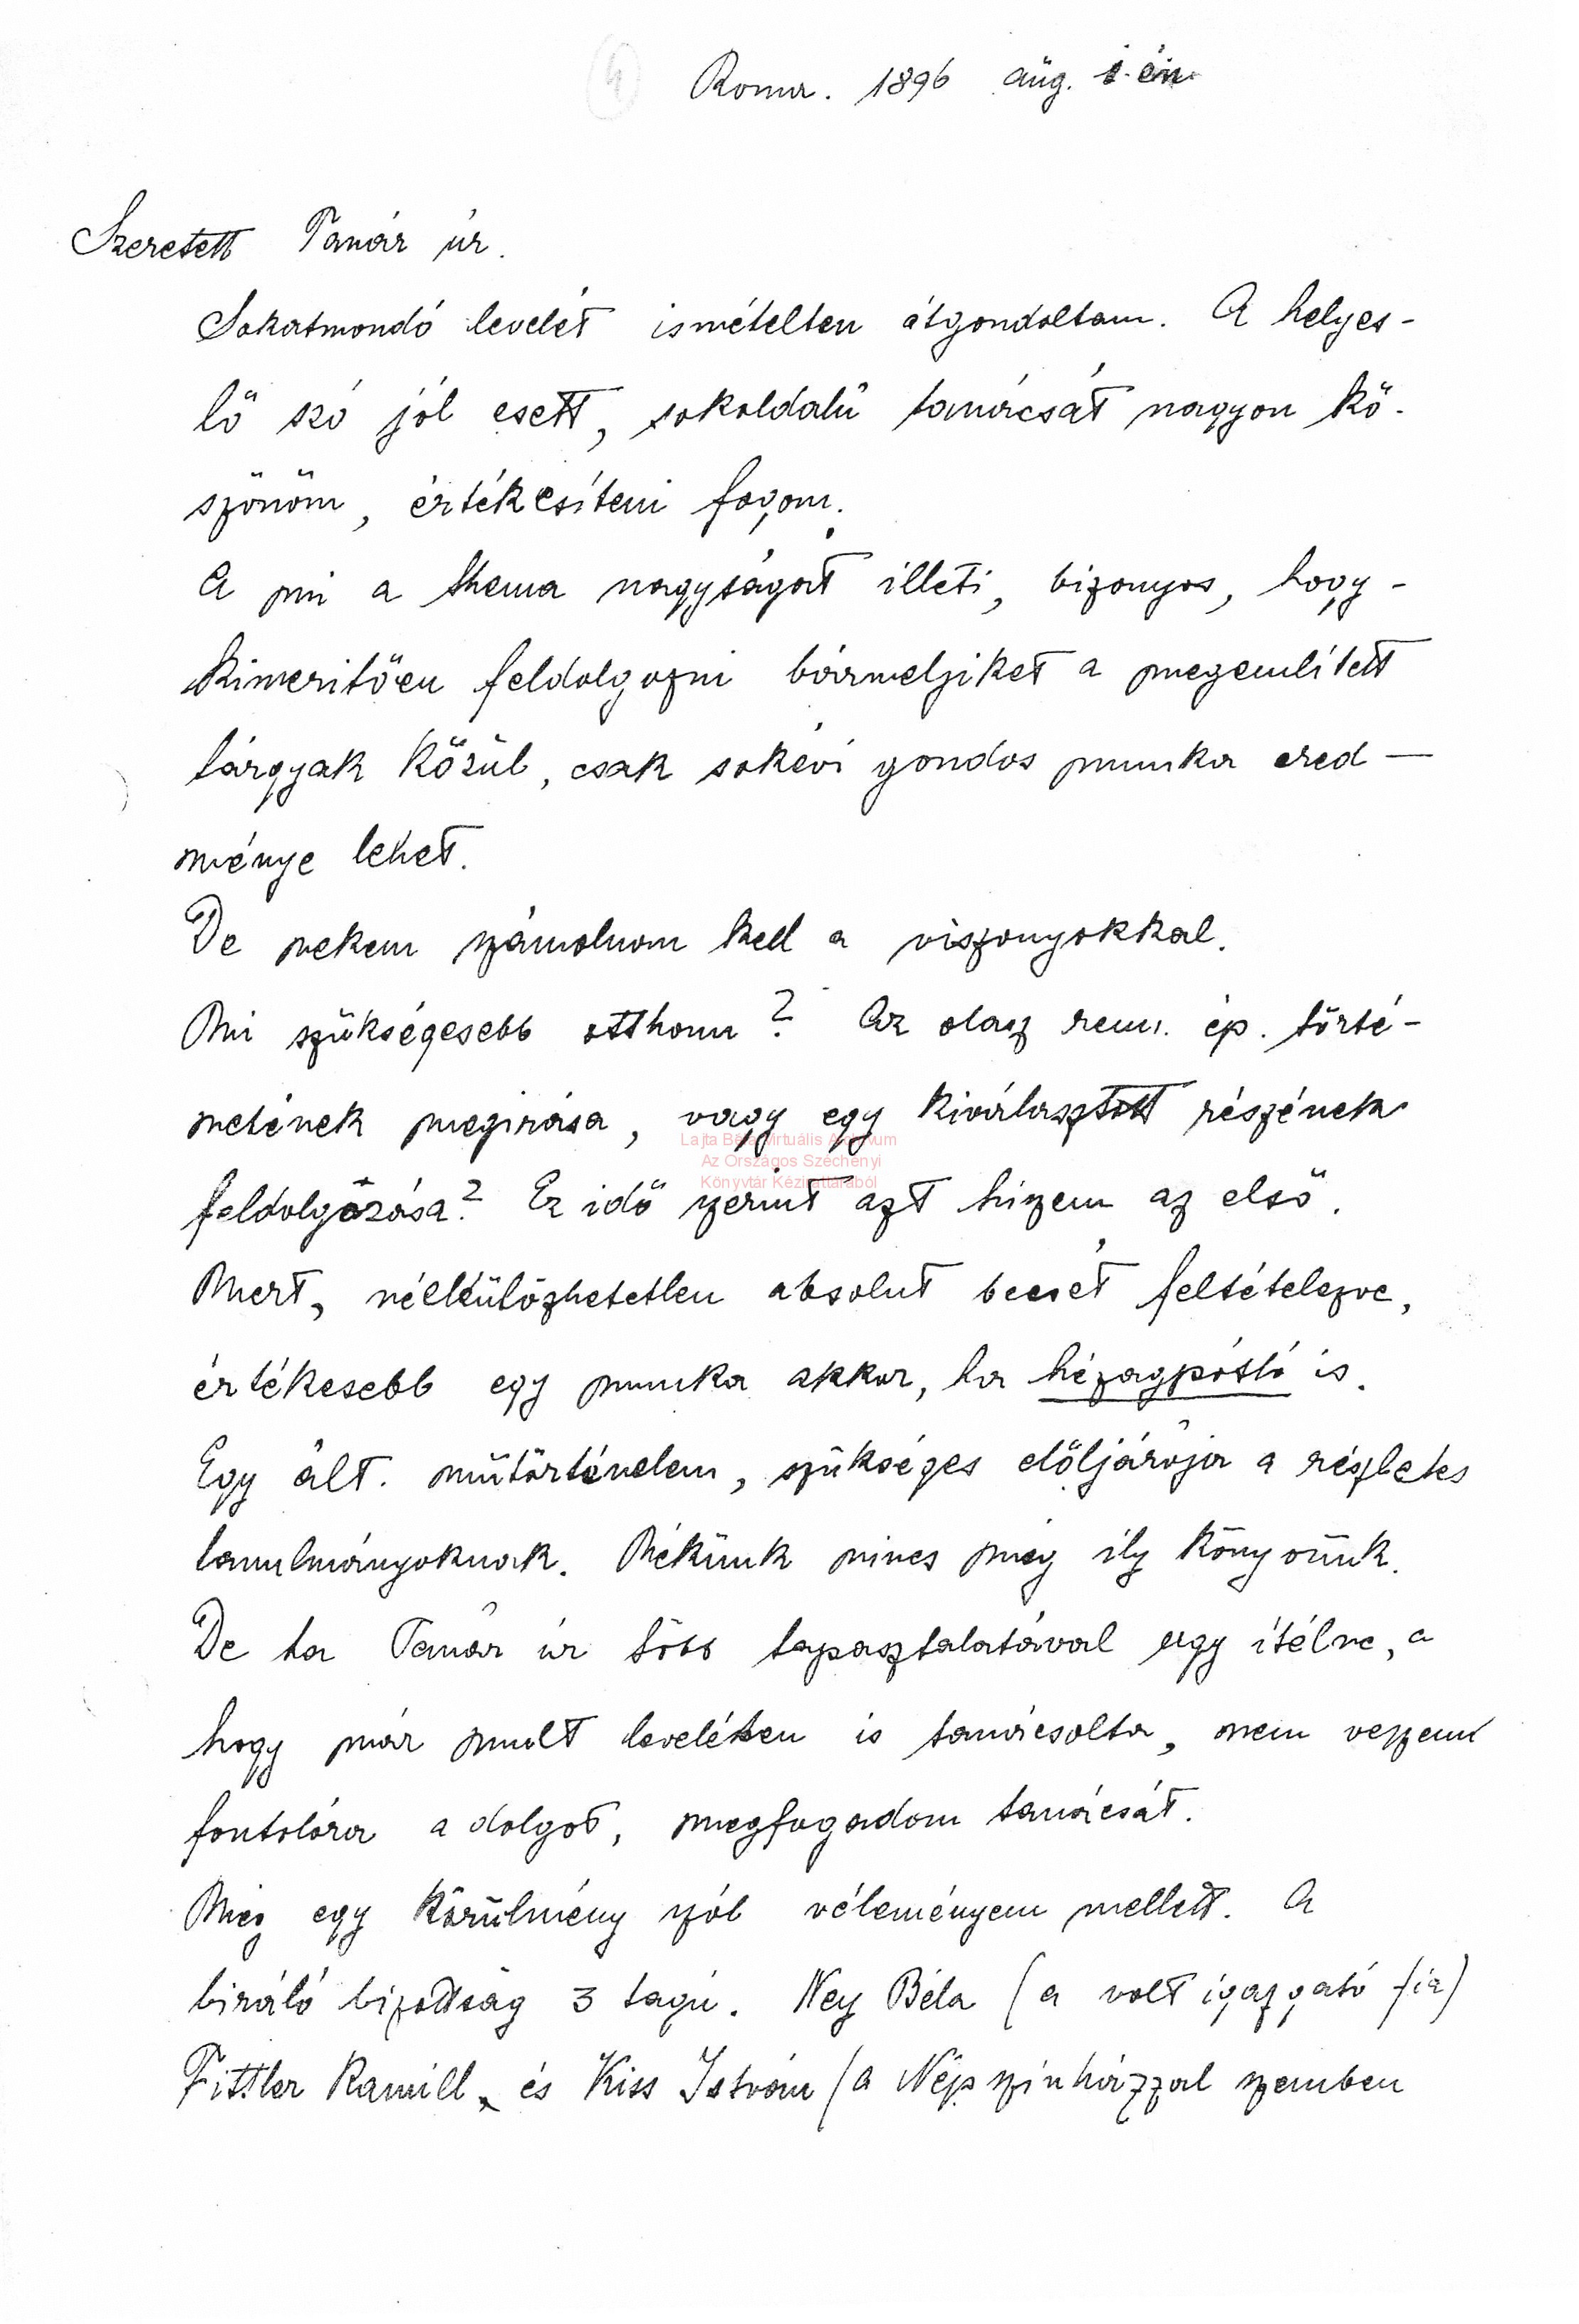 (4)
Roma. 1896 aug. 1-én
Szeretett Tanár úr.
Sokatmondó levelét ismételten átgondoltam. A helyes-
lő szó jól esett, sokoldalú tanácsát nagyon kö-
szönöm, értékesíteni fogom.
A mi a thema nagyságát illeti, bizonyos, hogy-
kimeritően feldolgozni bármelyiket a megemlített
tárgyak közül, csak sokévi gondos munka ered-
ménye lehet.
De nekem számolnom kell a viszonyokkal.
Mi szükségesebb otthon? Az olasz ren. ép. törté-
netének megirása, vagy egy kiválasztott részének
feldolgozása? Ez idő szerint azt hiszem az első.
Mert, nélkülözhetetlen absolut becsét feltételezve,
értékesebb egy munka akkor, ha hézagpótló is.
Egy ált. műtörténelem, szükséges előljárója a részletes
tanulmányoknak. Nékünk nincs még ily könyvünk.
De ha Tanár úr több tapasztalatával ugy itélne, a
hogy már mult levelében is tanácsolta, nem veszem
fontolóra a dolgot, megfogadom tanácsát.
Még egy körülmény szól véleményem mellett. A
biráló bizottság 3 tagú. Ney Béla (a volt igazgató fia)
Fittler Kamill, és Kiss István (a Népszínházzal szemben
Lajta Béla Virtuális Archívum
Az Országos Széchényi
Könyvtár Kézirattárából